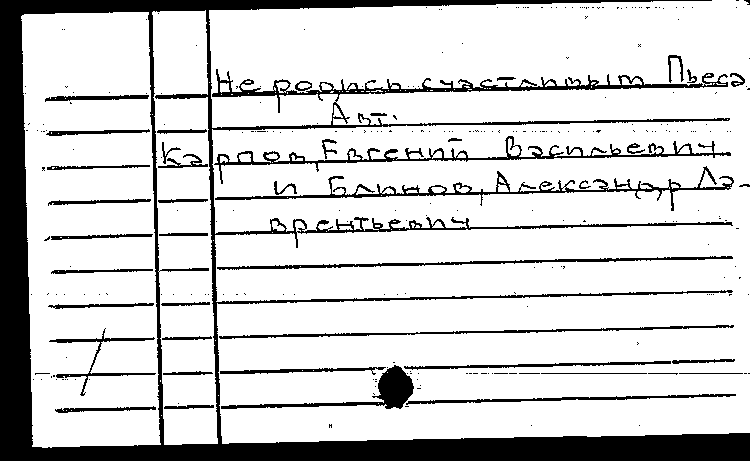 Не родись счастливым Пьеса
Авт.
Карпов, Евгений Васильевич
и Блинов, Александр Ла-
врентьевич